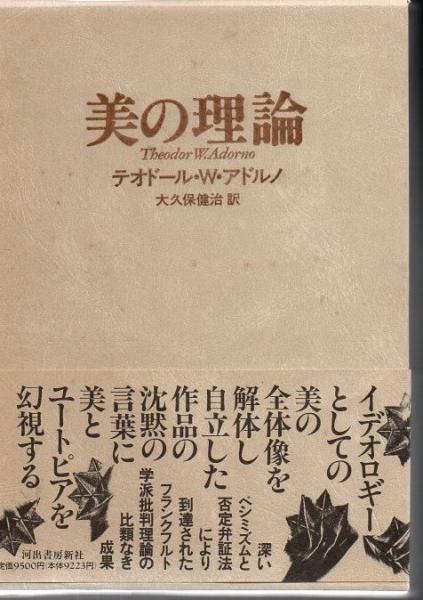 美の理論
Theodor W. Adorno
テオドール・W・アドルノ
大久保健治 訳
イデオロギー
としての
美の
全体像を
解体し
自立した
作品の
沈黙の
言葉に
美と
ユートピアを
幻視する
深い
ペシミズムと
否定弁証法
により
到達された
フランクフルト
学派批判理論の
比類なき
成果
河出書房新社
定価9500円(本体9223円)